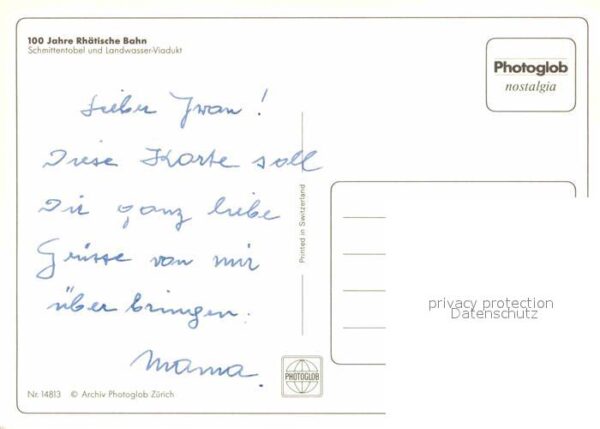 100 Jahre Rhätische Bahn
Schmittentobel und Landwasser-Viadukt
Photoglob
nostalgia
Lieber Ywan!
Diese Karte soll
Dir ganz liebe
Grüsse von mir
über bringen.
Mama.
Printed in Switzerland
PHOTOGLOB
Nr. 14813 © Archiv Photoglob Zürich
privacy protection
Datenschutz